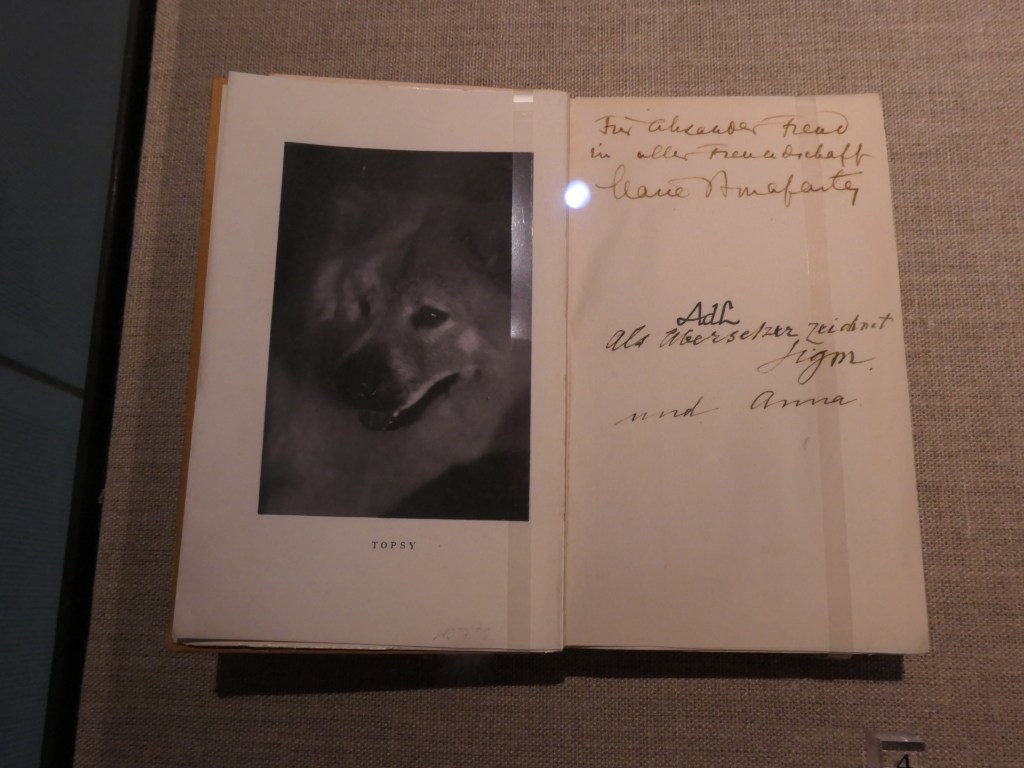 TOPSY
Für Alexander Freud
in aller Freundschaft
Marie Bonaparte
AdL
als Übersetzer zeichnet
Sigm.
und Anna
4